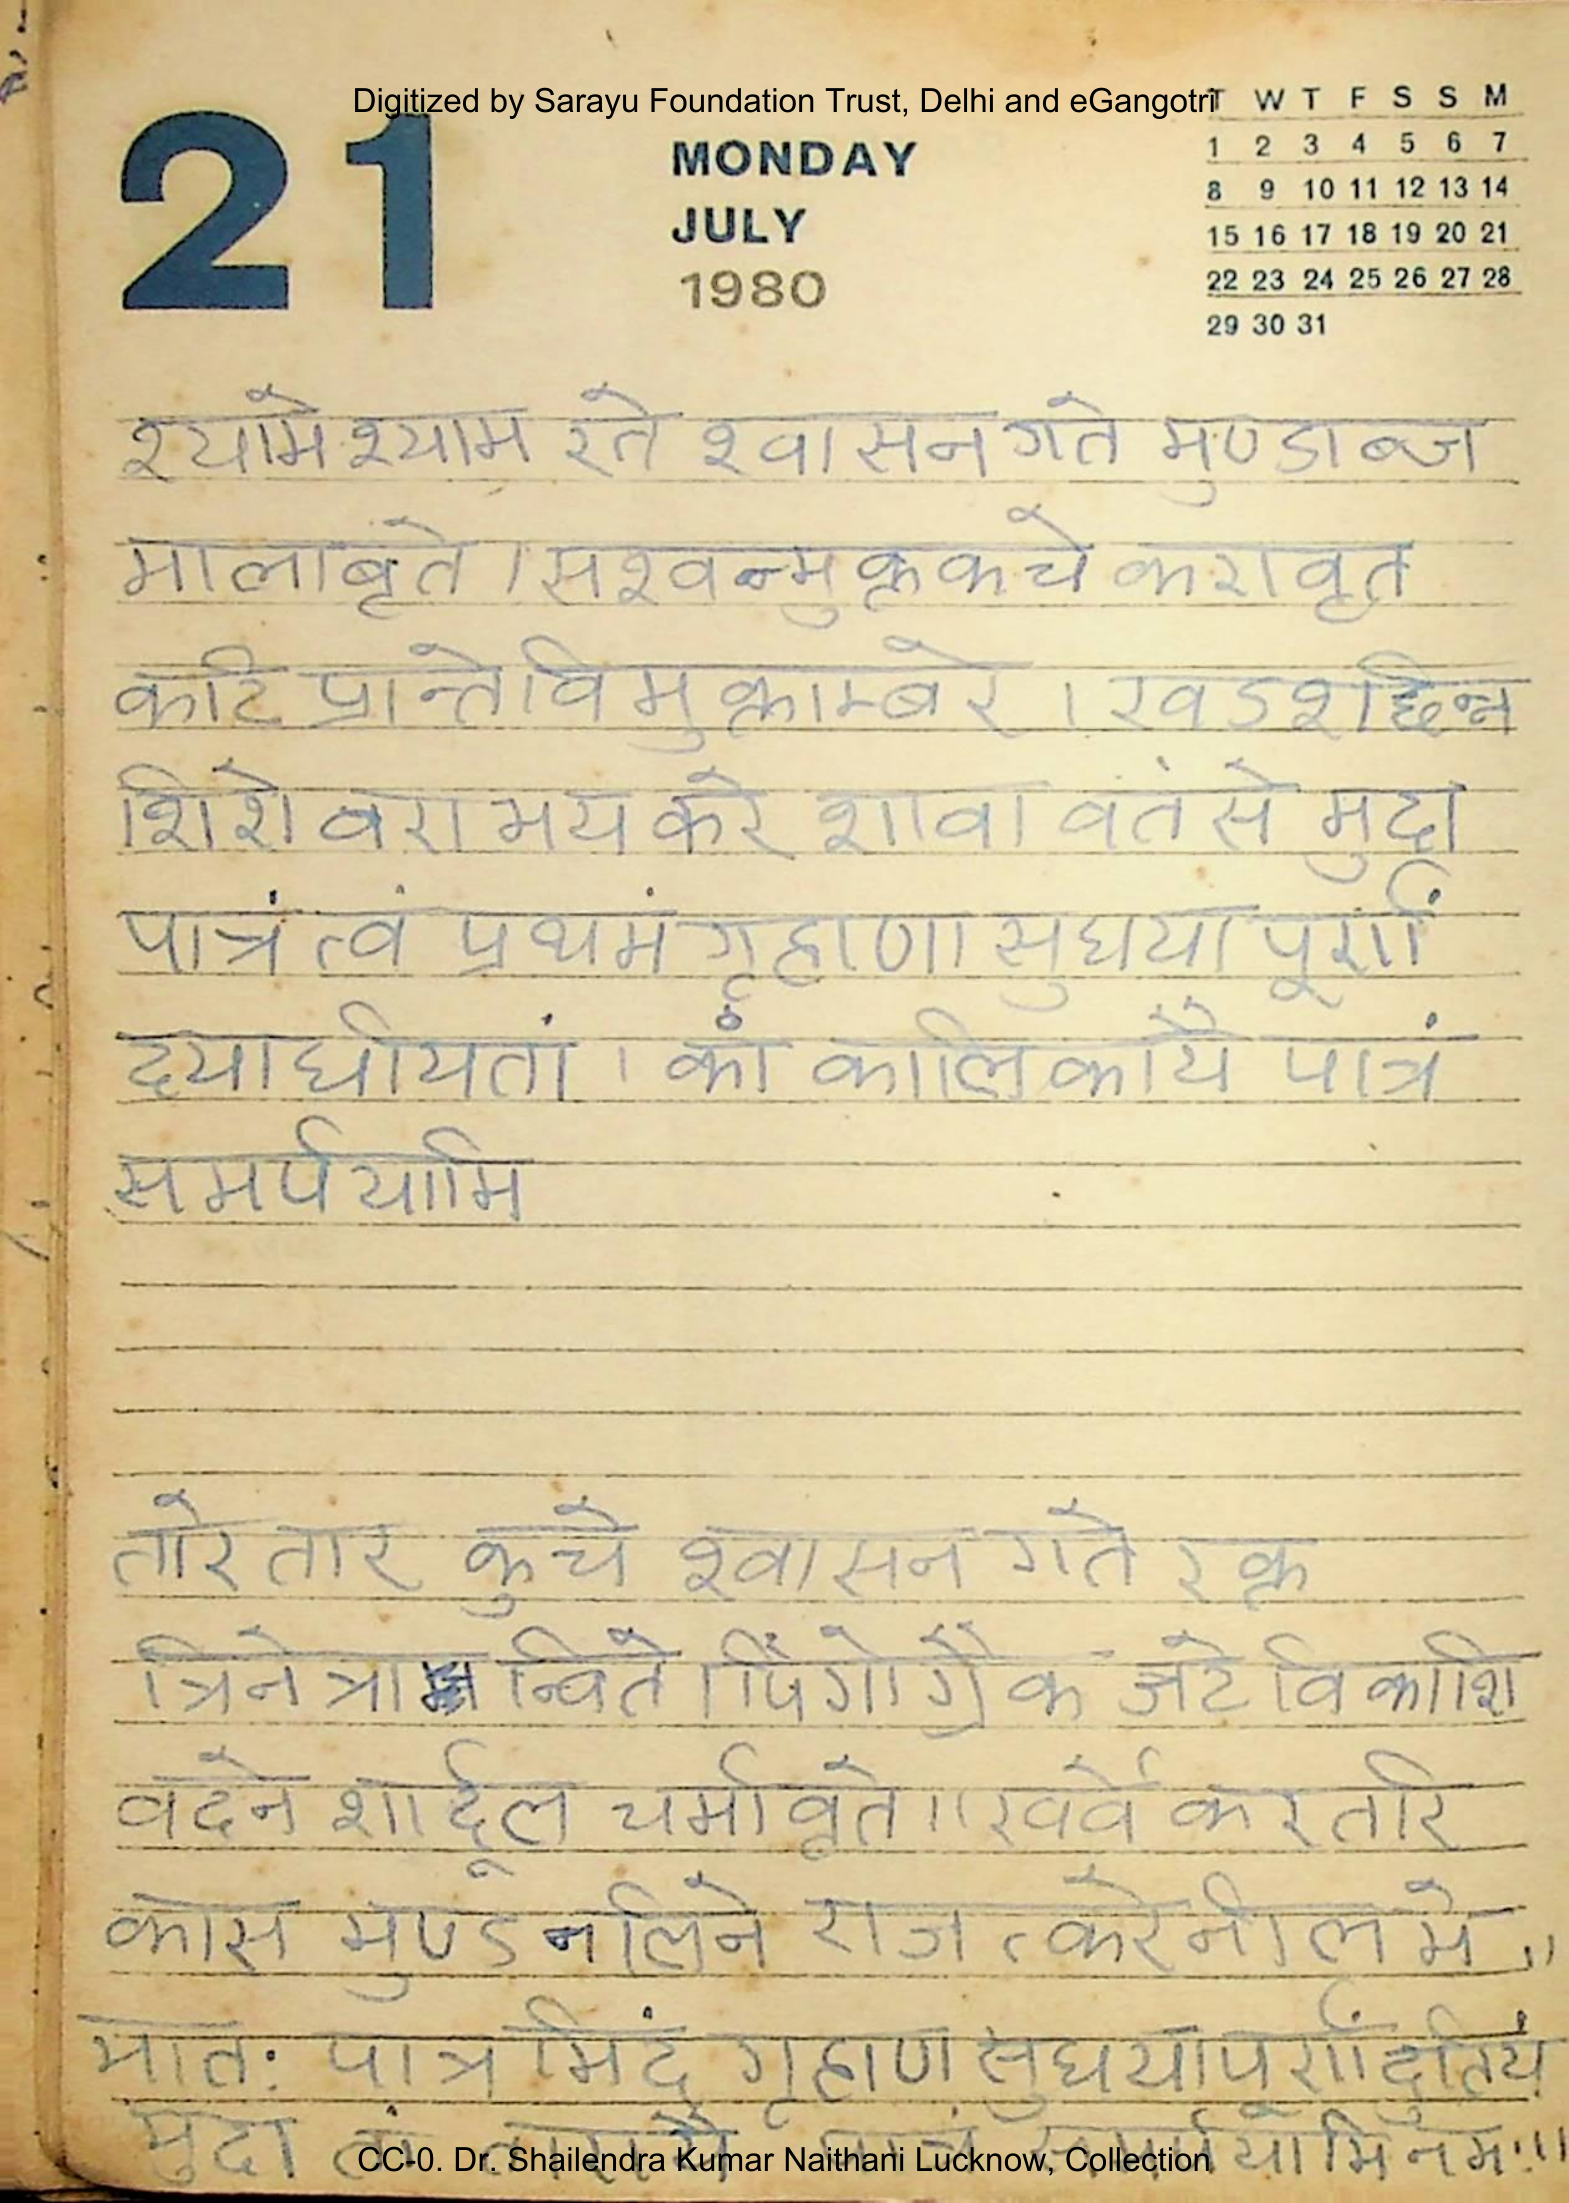 Digitized by Sarayu Foundation Trust, Delhi and eGangotri
21 MONDAY
JULY
1980
T W T F S S M
1 2 3 4 5 6 7
8 9 10 11 12 13 14
15 16 17 18 19 20 21
22 23 24 25 26 27 28
29 30 31
श्यामे श्याम रते श्वासन गते मुण्डाब्ज
मालाबृते । सश्वन्मुक्त कचे करावृत
कटि प्रान्ते विमुक्ताम्बरे । खडशछिन्न
शिरो वरा मय करे शावा वतंसे मुदा
पात्रं त्वं प्रथमं गृहाणा सुधया पूर्णां
दयाधीयतां । कां कालिकायै पात्रं
समर्पयामि
तारे तार कुचे श्वासन गते रक्त
त्रिनेत्रा न्विते । पिंगोग्रैक जटे विकाशि
वदने शार्दूल चर्मावृते ।। खर्वे करतरि
कास मुण्ड नलिने राजत्करे नील मे ।।
मातः पात्र मिदं गृहाण सुधया पूर्णां दुतियं
मुदा तां तारायै पात्रं समर्पयामि नमः ।।
CC-0. Dr. Shailendra Kumar Naithani Lucknow, Collection